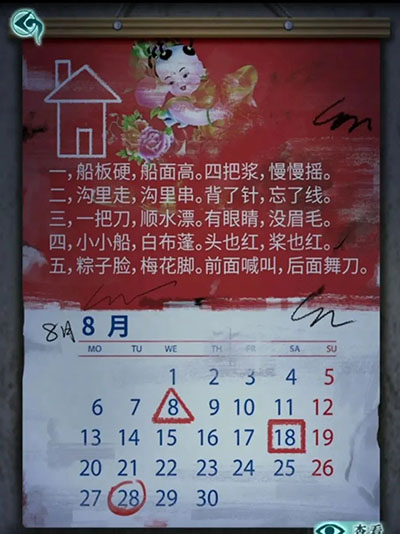 一，船板硬，船面高。四把桨，慢慢摇。
二，沟里走，沟里串。背了针，忘了线。
三，一把刀，顺水漂。有眼睛，没眉毛。
四，小小船，白布蓬。头也红，桨也红。
五，粽子脸，梅花脚。前面喊叫，后面舞刀。
8月 8 月
MO TU WE TH FR SA SU
1 2 3 4 5
6 7 8 9 10 11 12
13 14 15 16 17 18 19
20 21 22 23 24 25 26
27 28 29 30
查看